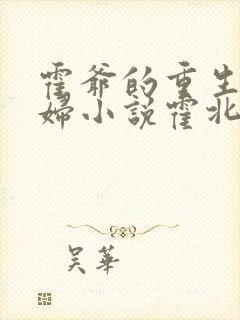 霍爺的重生
婦小說霍北
吴華